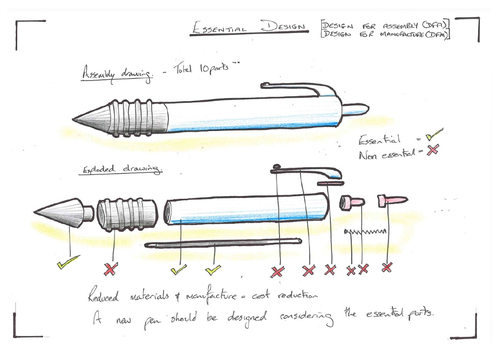 Essential Design
[Design for Assembly (DFA)]
[Design for Manufacture (DFM)]
Assembly drawing - Total 10 parts
Essential =
Non essential =
Exploded drawing
Reduced materials & manufacture = cost reduction
A new pen should be designed considering the essential parts.